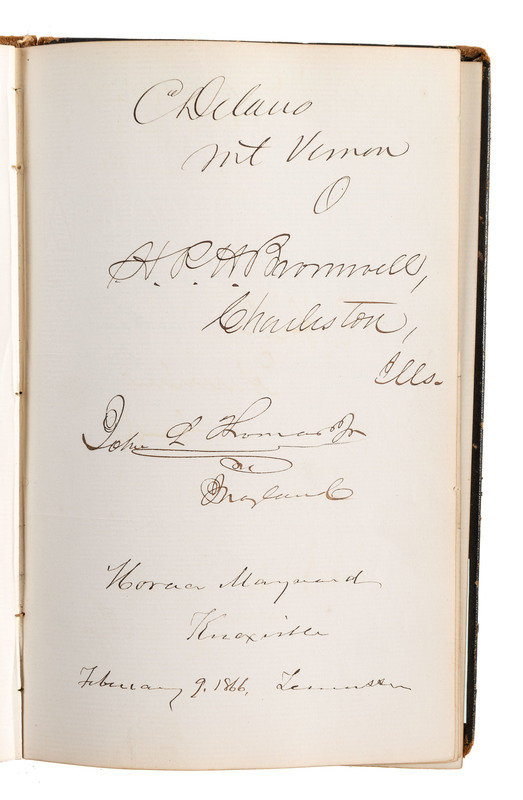 C Delano
Mt Vernon
O
H. P. H. Bromwell,
Charleston,
Ills.
John L Thomas Jr
Maryland
Horace Maynard
Knoxville
February 9, 1866, Tennessee